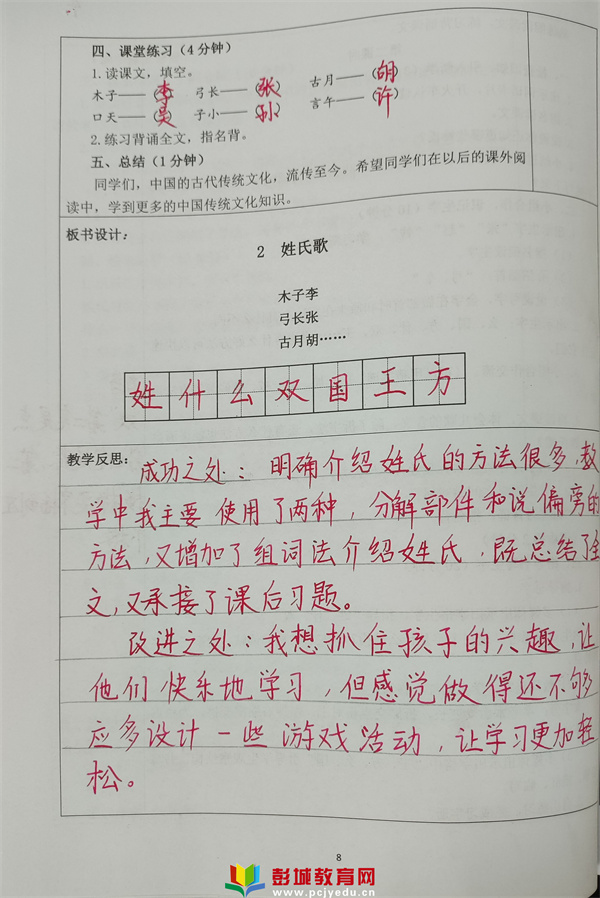 四、课堂练习（4分钟）
1.读课文，填空。
木子——（李） 弓长——（张） 古月——（胡）
口天——（吴） 子小——（孙） 言午——（许）
2.练习背诵全文，指名背。
五、总结（1分钟）
同学们，中国的古代传统文化，流传至今。希望同学们在以后的课外阅
读中，学到更多的中国传统文化知识。
板书设计：
2 姓氏歌
木子李
弓长张
古月胡……
姓什么双国王方
教学反思：
成功之处：明确介绍姓氏的方法很多，教
学中我主要使用了两种，分解部件和说偏旁的
方法，又增加了组词法介绍姓氏，既总结了全
文，又承接了课后习题。
改进之处：我想抓住孩子的兴趣，让
他们快乐地学习，但感觉做得还不够
应多设计一些游戏活动，让学习更加轻
松。
8
彭城教育网
www.pcjyedu.cn